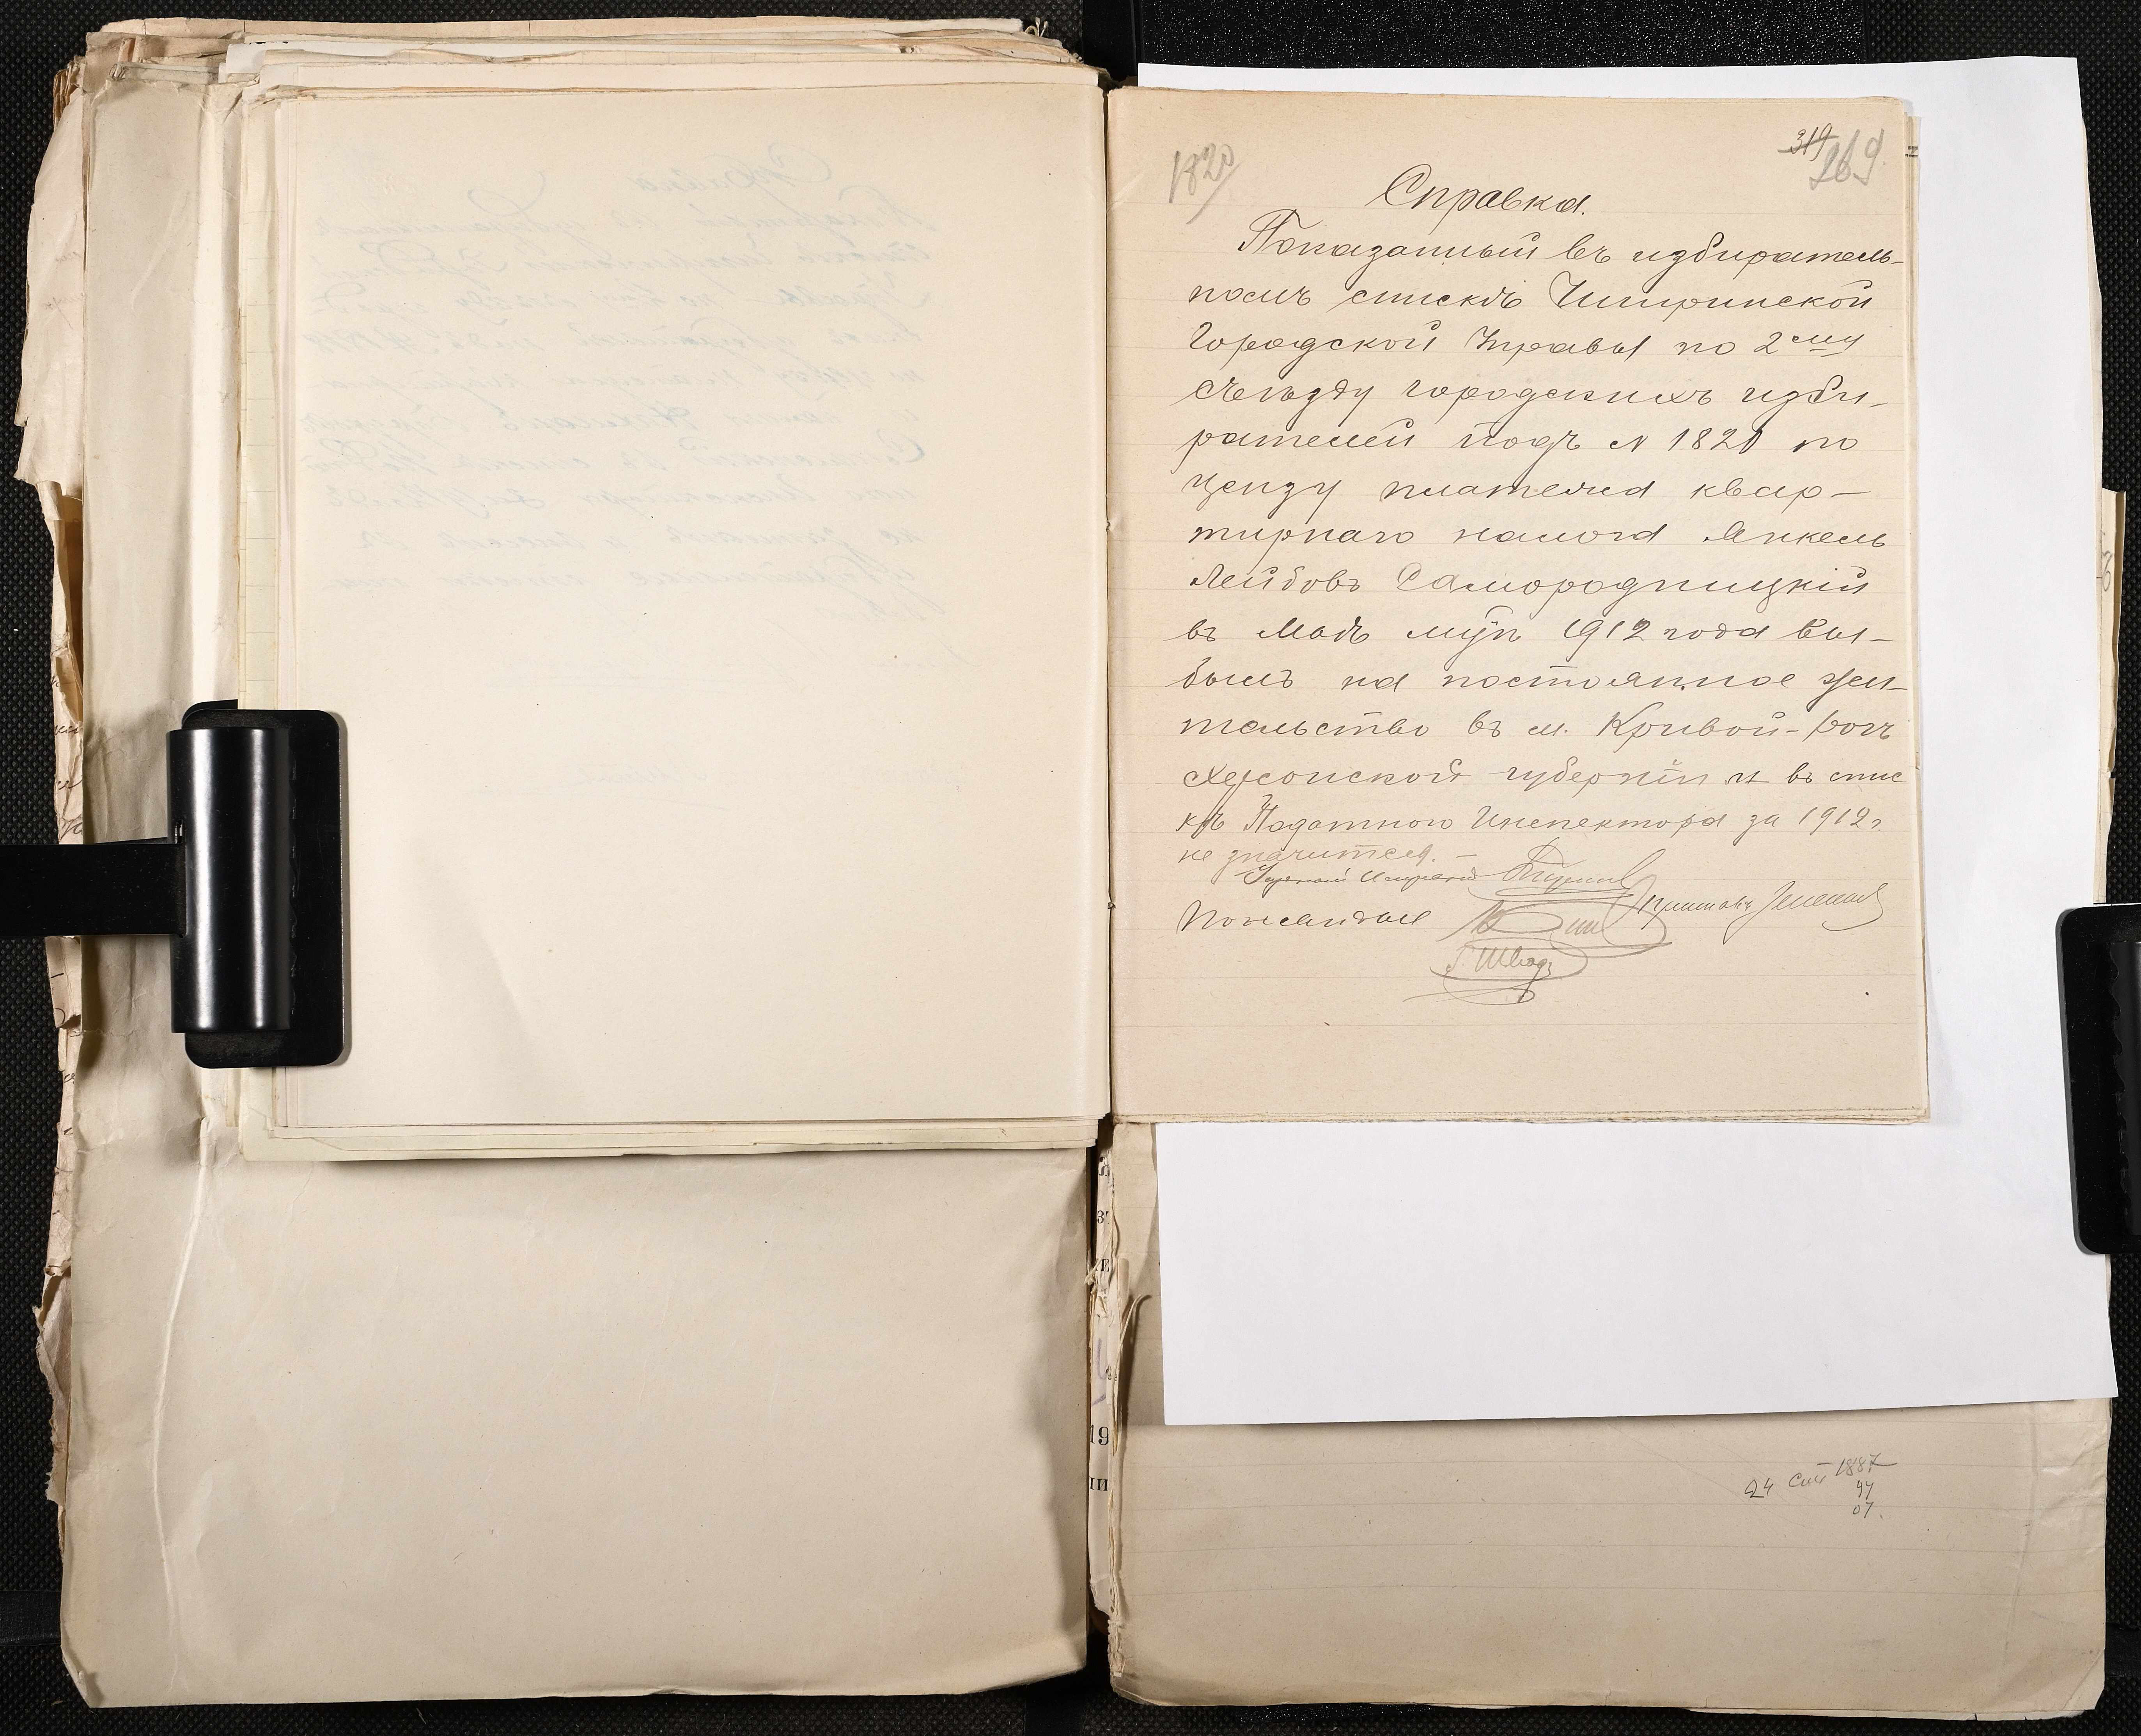 1820
319
269
Справка.
Показанный въ избиратель-
номъ спискѣ Чигиринской
Городской Управы по 2му
съѣзду городскихъ изби-
рателей подъ № 1820 по
цензу плательща квар-
тирнаго налога Янкель
Лейбовъ Самородницкій
въ Маѣ м-цѣ 1912 года вы-
былъ на постоянное жи-
тельство въ м. Кривой-рогъ
Херсонской губерніи и въ спис
кѣ Податного Инспектора за 1912 г.
не значится. –
Понятые
Г. Шварц
24 1887
97
07.